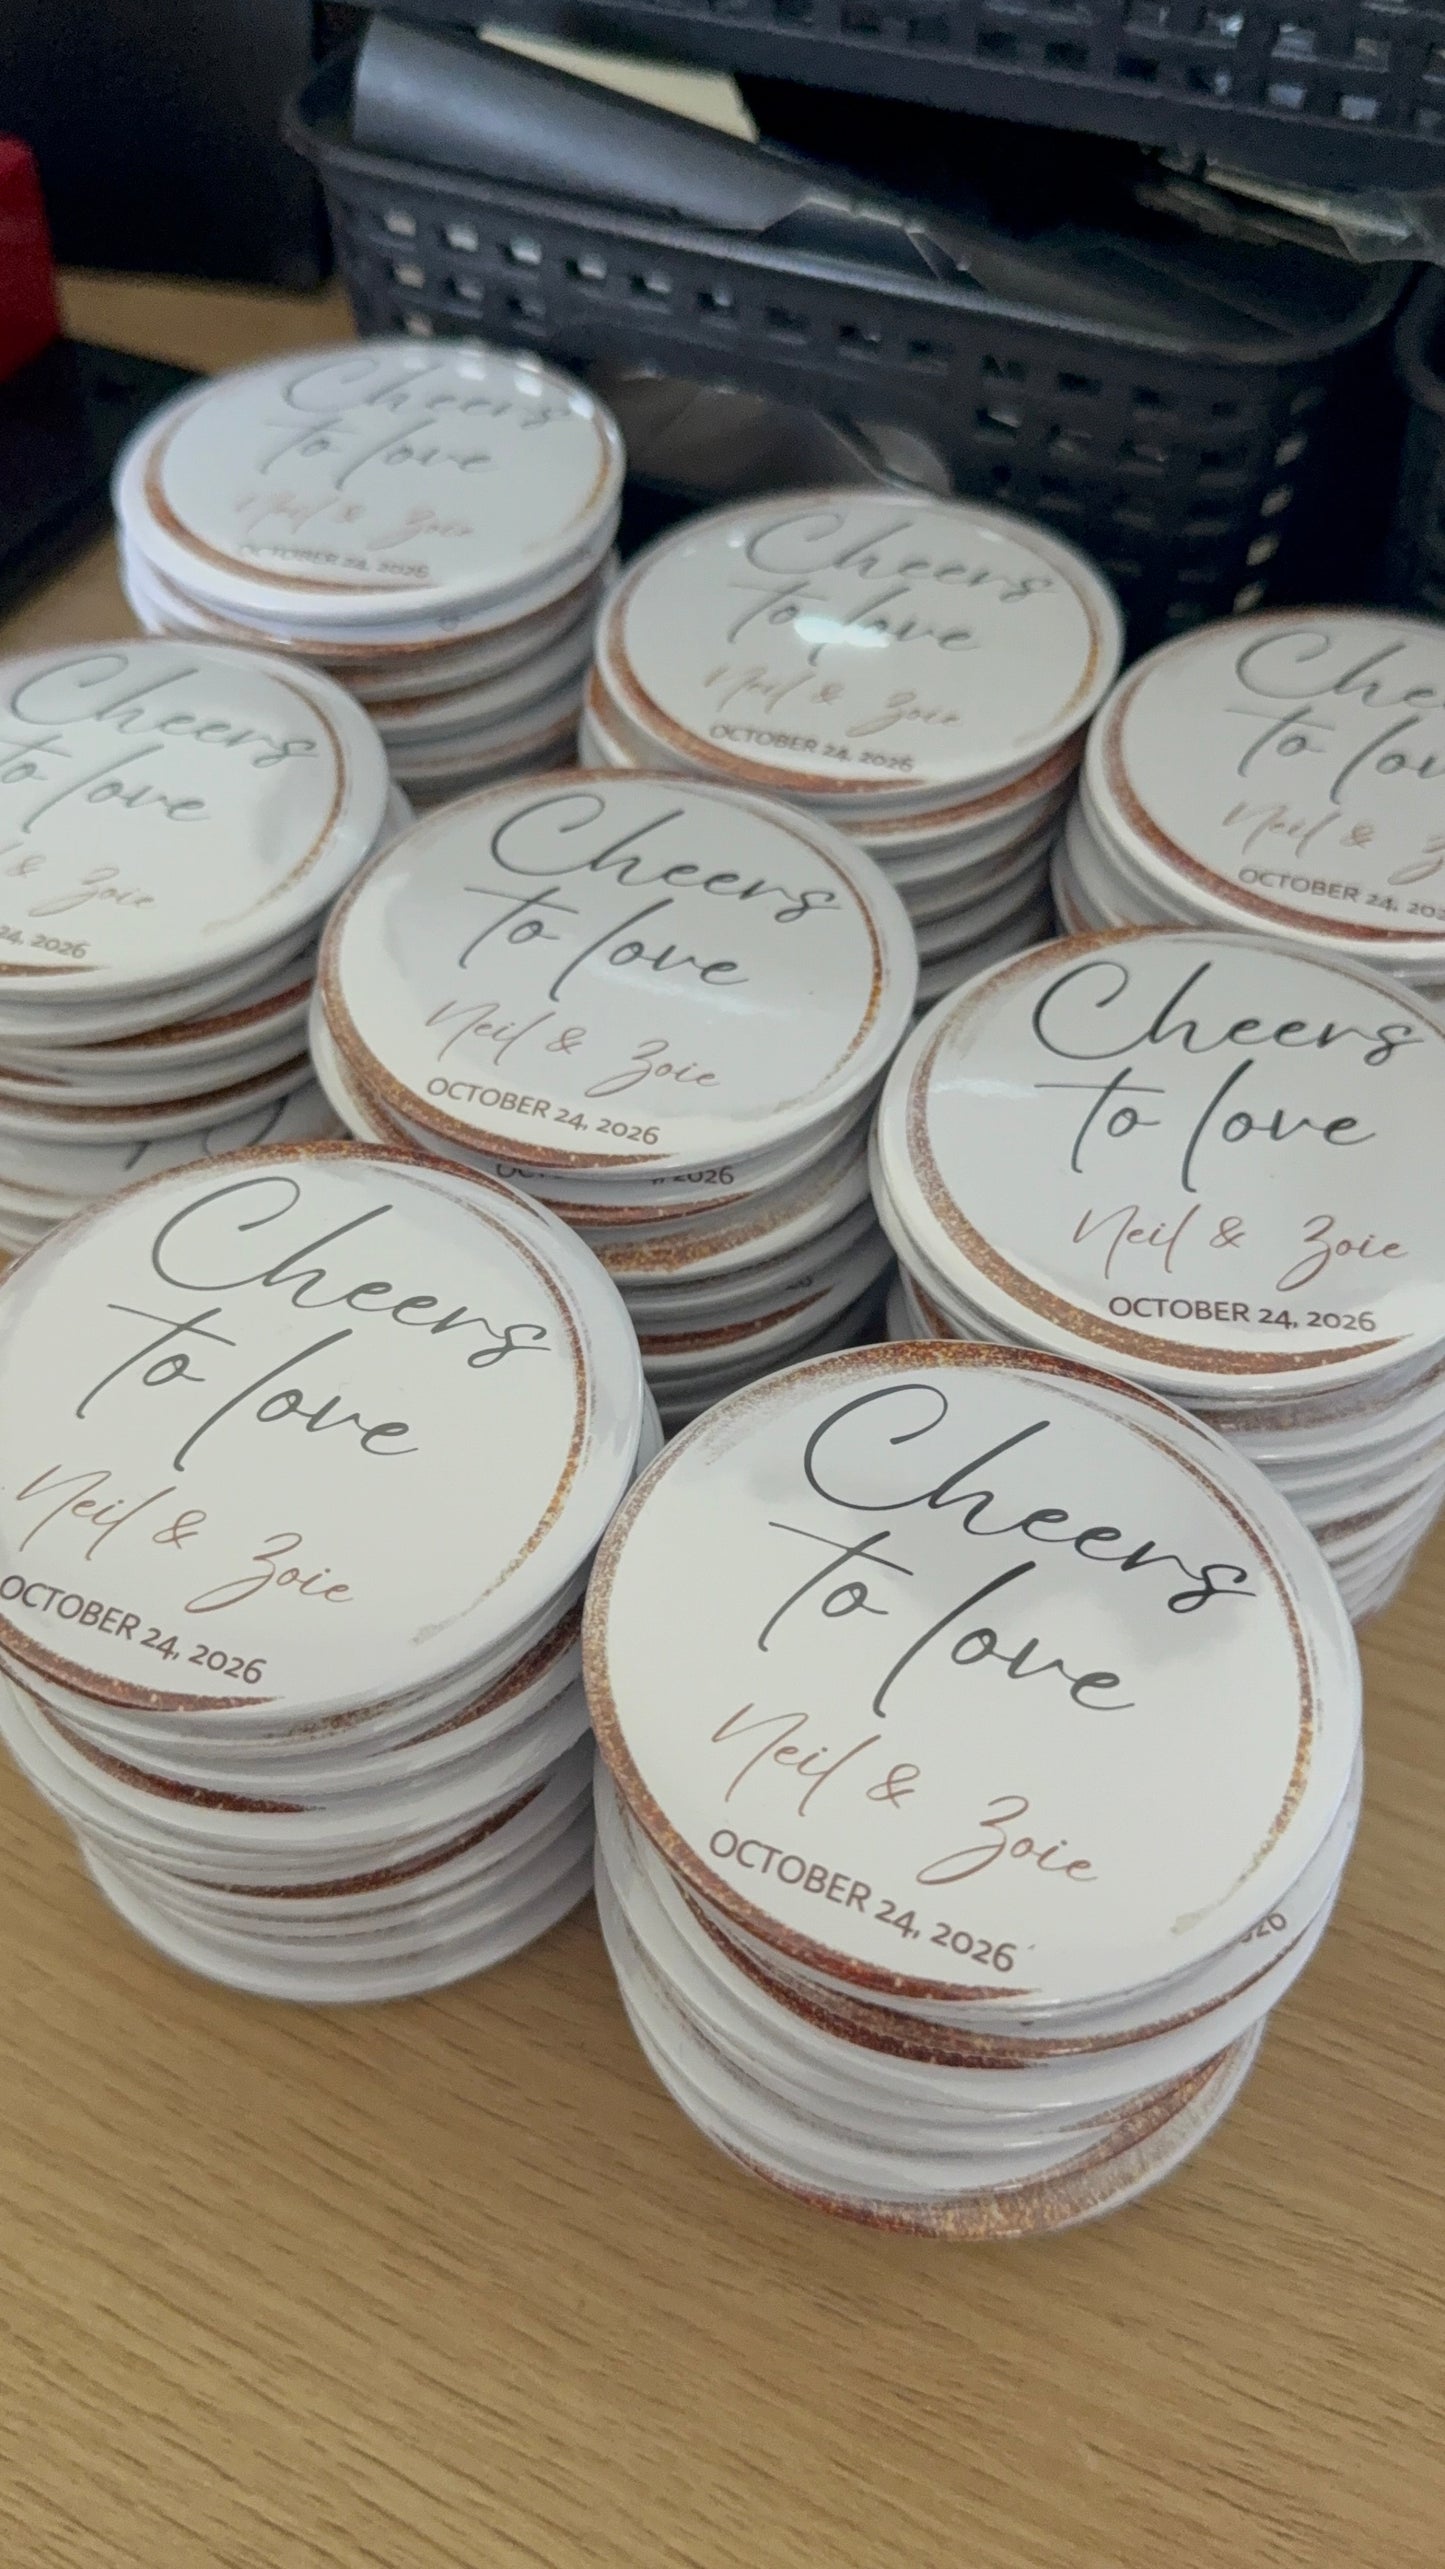 Cheers
to love
Neil & Zoie
OCTOBER 24, 2026
Cheers
to love
Neil & Zoie
OCTOBER 24, 2026
Che
to lov
Neil & Z
OCTOBER 24, 202
Cheers
to love
& Zoie
24, 2026
Cheers
to love
Neil & Zoie
OCTOBER 24, 2026
2026
Cheers
to love
Neil & Zoie
OCTOBER 24, 2026
Cheers
to love
Neil & Zoie
OCTOBER 24, 2026
Cheers
to love
Neil & Zoie
OCTOBER 24, 2026